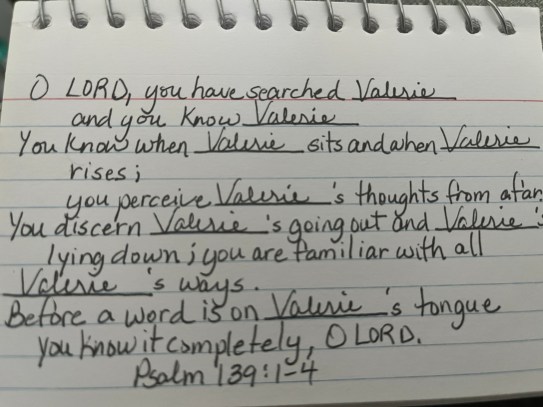 O LORD, you have searched Valerie
and you know Valerie
You know when Valerie sits and when Valerie
rises;
you perceive Valerie's thoughts from afar.
You discern Valerie's going out and Valerie's
lying down; you are familiar with all
Valerie's ways.
Before a word is on Valerie's tongue
you know it completely, O LORD.
Psalm 139:1-4